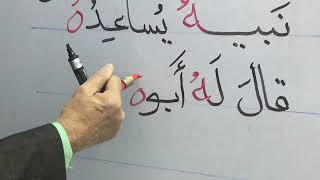 نَبيـــهُ يُساعِدُهُ
قالَ لَهُ أَبوه